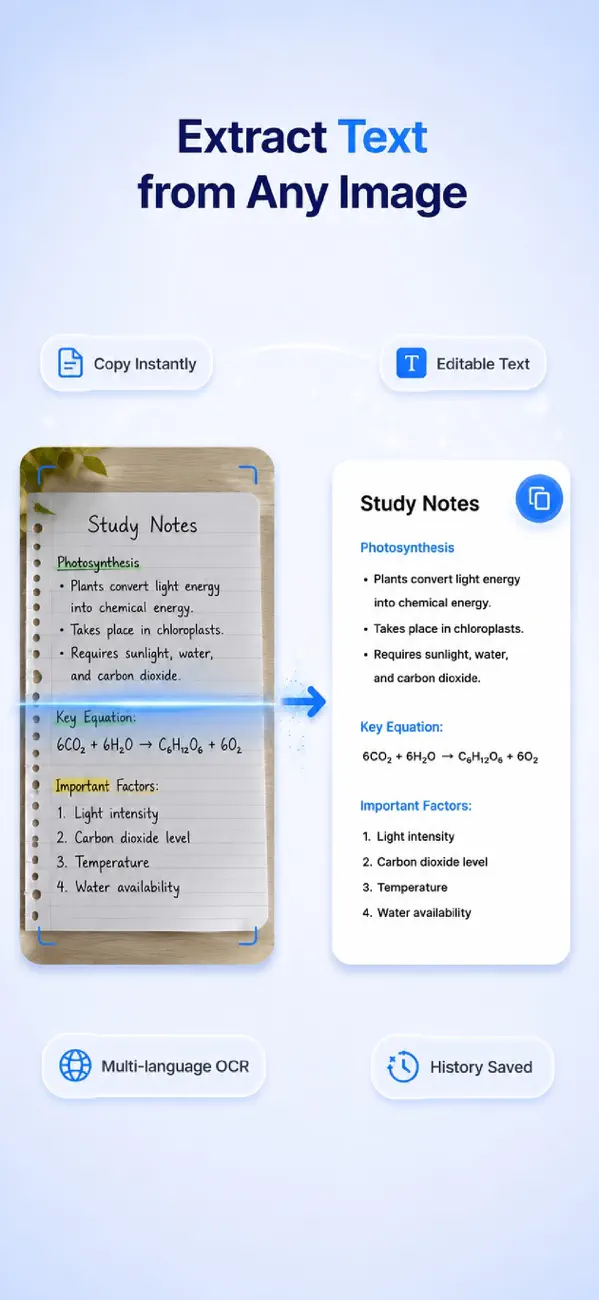 Extract Text
from Any Image
Copy Instantly
T Editable Text
Study Notes
Photosynthesis
• Plants convert light energy
into chemical energy.
• Takes place in chloroplasts.
• Requires sunlight, water,
and carbon dioxide.
Key Equation:
6CO₂ + 6H₂O → C₆H₁₂O₆ + 6O₂
Important Factors:
1. Light intensity
2. Carbon dioxide level
3. Temperature
4. Water availability
Study Notes
Photosynthesis
• Plants convert light energy
into chemical energy.
• Takes place in chloroplasts.
• Requires sunlight, water,
and carbon dioxide.
Key Equation:
6CO₂ + 6H₂O → C₆H₁₂O₆ + 6O₂
Important Factors:
1. Light intensity
2. Carbon dioxide level
3. Temperature
4. Water availability
Multi-language OCR
History Saved